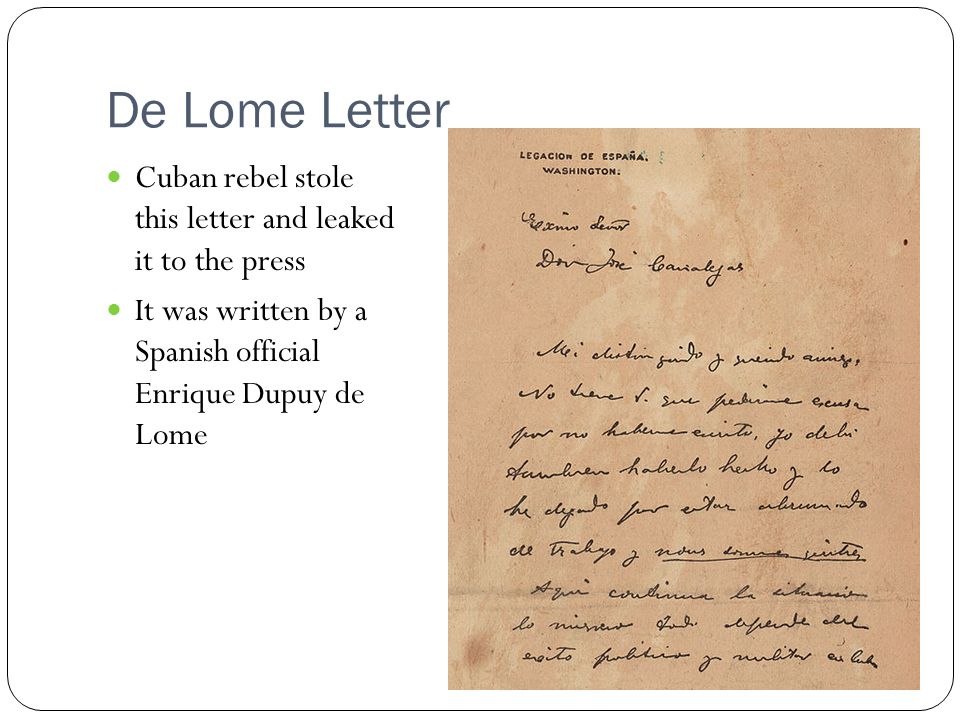 De Lome Letter
Cuban rebel stole
this letter and leaked
it to the press
It was written by a
Spanish official
Enrique Dupuy de
Lome
LEGACION DE ESPAÑA.
WASHINGTON.
Exmo Señor
Don José Canalejas
Mi distinguido y querido amigo,
No tiene V. que pedirme excusa
por no haberme escrito, yo debi
tambien haberlo hecho y lo
he dejado por estar abrumado
de trabajo y nous sommes quittes
Aqui continua la situacion
lo mismo todo depende del
exito politico y militar en Cuba